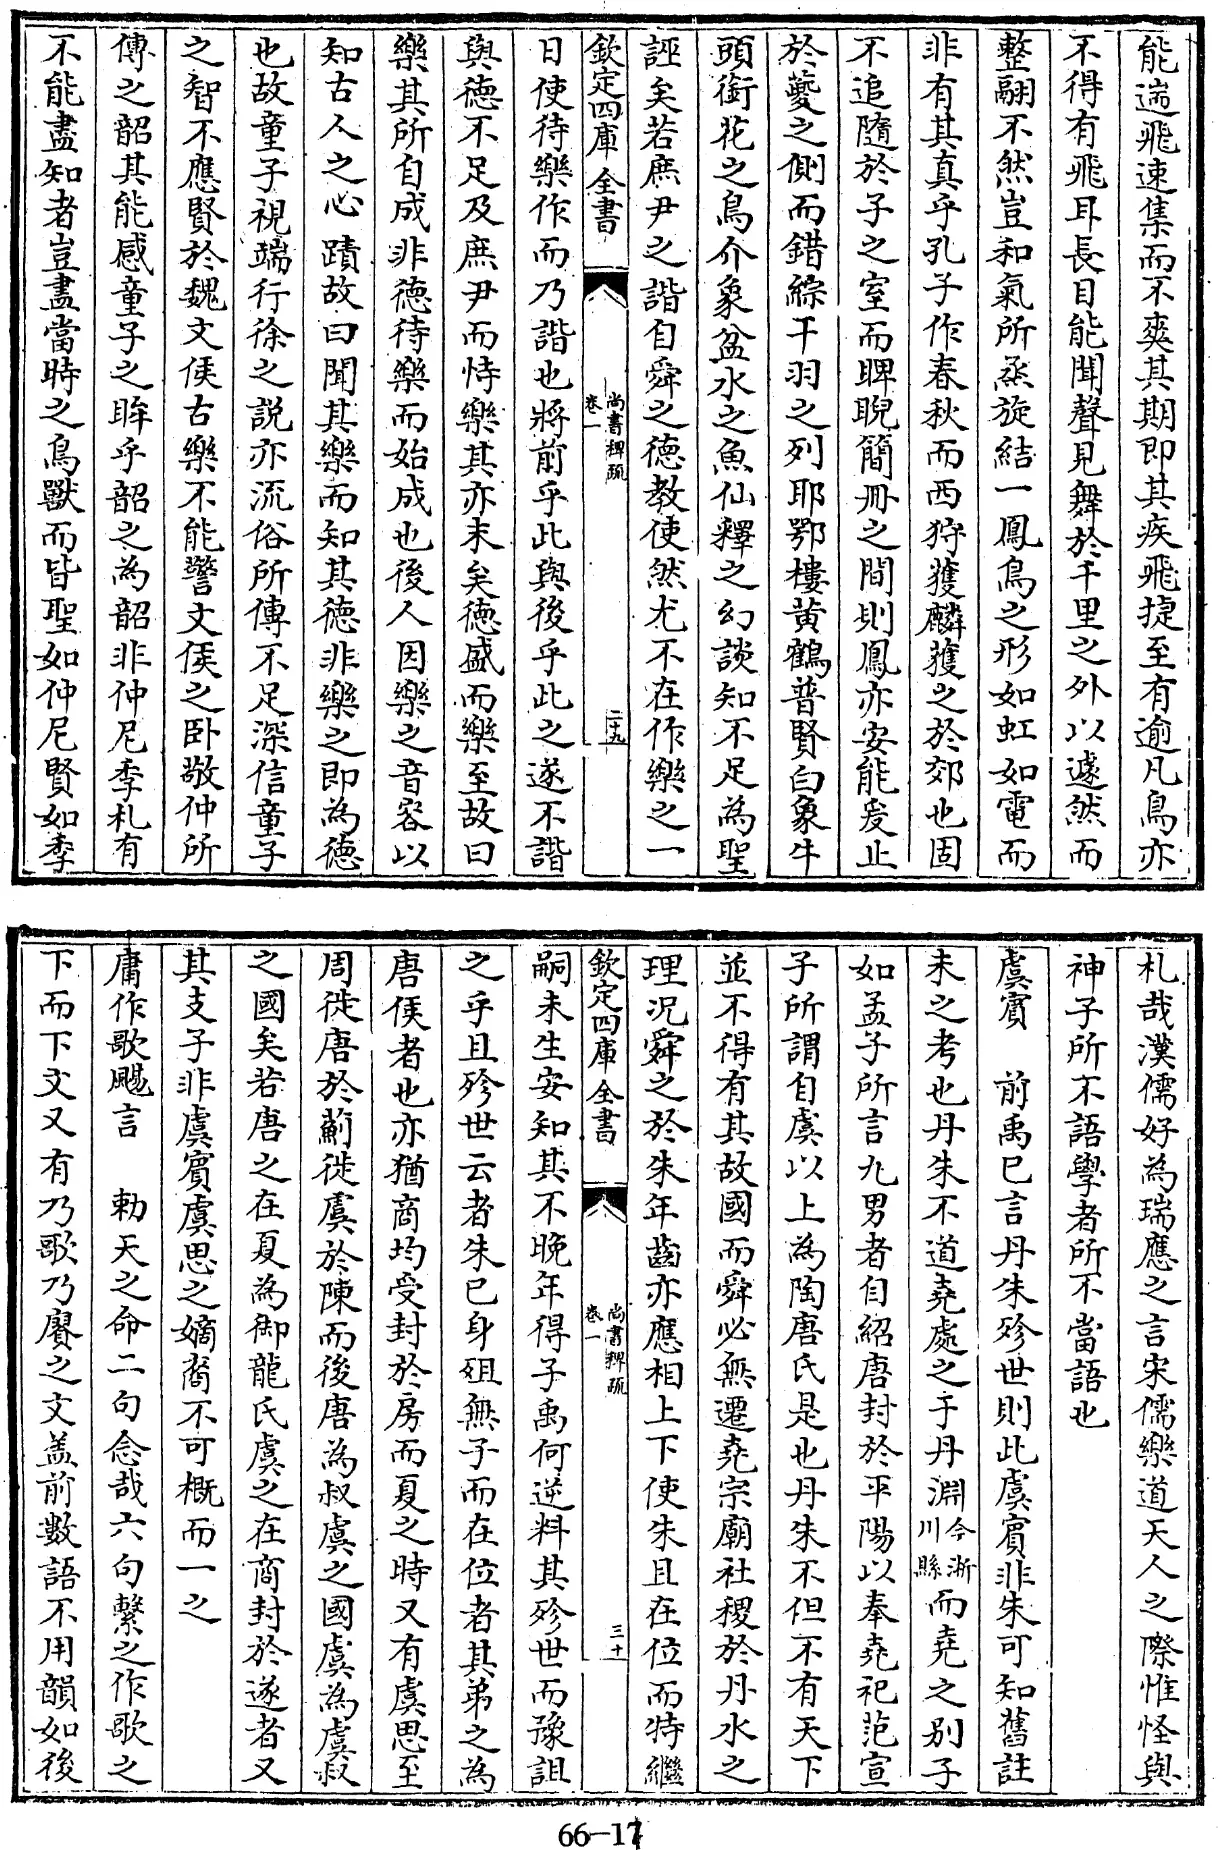 能遄飛速集而不爽其期即其疾飛捷至有逾凡鳥亦
不得有飛耳長目能聞聲見舞於千里之外以遽然而
整翮不然豈和氣所烝旋結一鳳鳥之形如虹如電而
非有其真乎孔子作春秋而西狩獲麟獲之於郊也固
不追隨於子之室而睥睨簡冊之間則鳳亦安能爰止
於夔之側而錯綜干羽之列耶鄂樓黃鶴普賢白象牛
頭銜花之鳥介象盆水之魚仙釋之幻談知不足為聖
誣矣若庶尹之諧自舜之德教使然尤不在作樂之一
欽定四庫全書
尚書稗疏
卷一
二十九
日使待樂作而乃諧也將前乎此與後乎此之遂不諧
與德不足及庶尹而恃樂其亦末矣德盛而樂至故曰
樂其所自成非德待樂而始成也後人因樂之音容以
知古人之心蹟故曰聞其樂而知其德非樂之即為德
也故童子視端行徐之說亦流俗所傳不足深信童子
之智不應賢於魏文侯古樂不能警文侯之卧敬仲所
傳之韶其能感童子之眸乎韶之為韶非仲尼季札有
不能盡知者豈盡當時之鳥獸而皆聖如仲尼賢如季
札哉漢儒好為瑞應之言宋儒樂道天人之際惟怪與
神子所不語學者所不當語也
虞賓　前禹已言丹朱殄世則此虞賓非朱可知舊註
未之考也丹朱不道堯處之于丹淵今淅川縣而堯之別子
如孟子所言九男者自紹唐封於平陽以奉堯祀范宣
子所謂自虞以上為陶唐氏是也丹朱不但不有天下
並不得有其故國而舜必無遷堯宗廟社稷於丹水之
理况舜之於朱年齒亦應相上下使朱且在位而特繼
欽定四庫全書
尚書稗疏
卷一
三十
嗣未生安知其不晚年得子禹何逆料其殄世而豫詛
之乎且殄世云者朱已身殂無子而在位者其弟之為
唐侯者也亦猶商均受封於房而夏之時又有虞思至
周徙唐於薊徙虞於陳而後唐為叔虞之國虞為虞叔
之國矣若唐之在夏為御龍氏虞之在商封於遂者又
其支子非虞賓虞思之嫡裔不可概而一之
庸作歌颺言　勅天之命二句念哉六句繫之作歌之
下而下文又有乃歌乃賡之文盖前數語不用韻如後
66-17